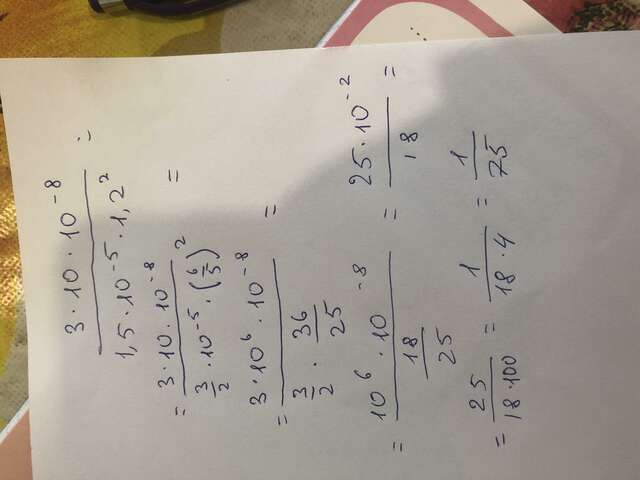 3 · 10 · 10⁻⁸ / 1,5 · 10⁻⁵ · 1,2² =
= 3 · 10 · 10⁻⁸ / 3/2 · 10⁻⁵ · (6/5)² =
= 3 · 10⁶ · 10⁻⁸ / 3/2 · 36/25 =
= 10⁶ · 10⁻⁸ / 18/25 = 25 · 10⁻² / 18 =
= 25 / 18 · 100 = 1 / 18 · 4 = 1 / 75